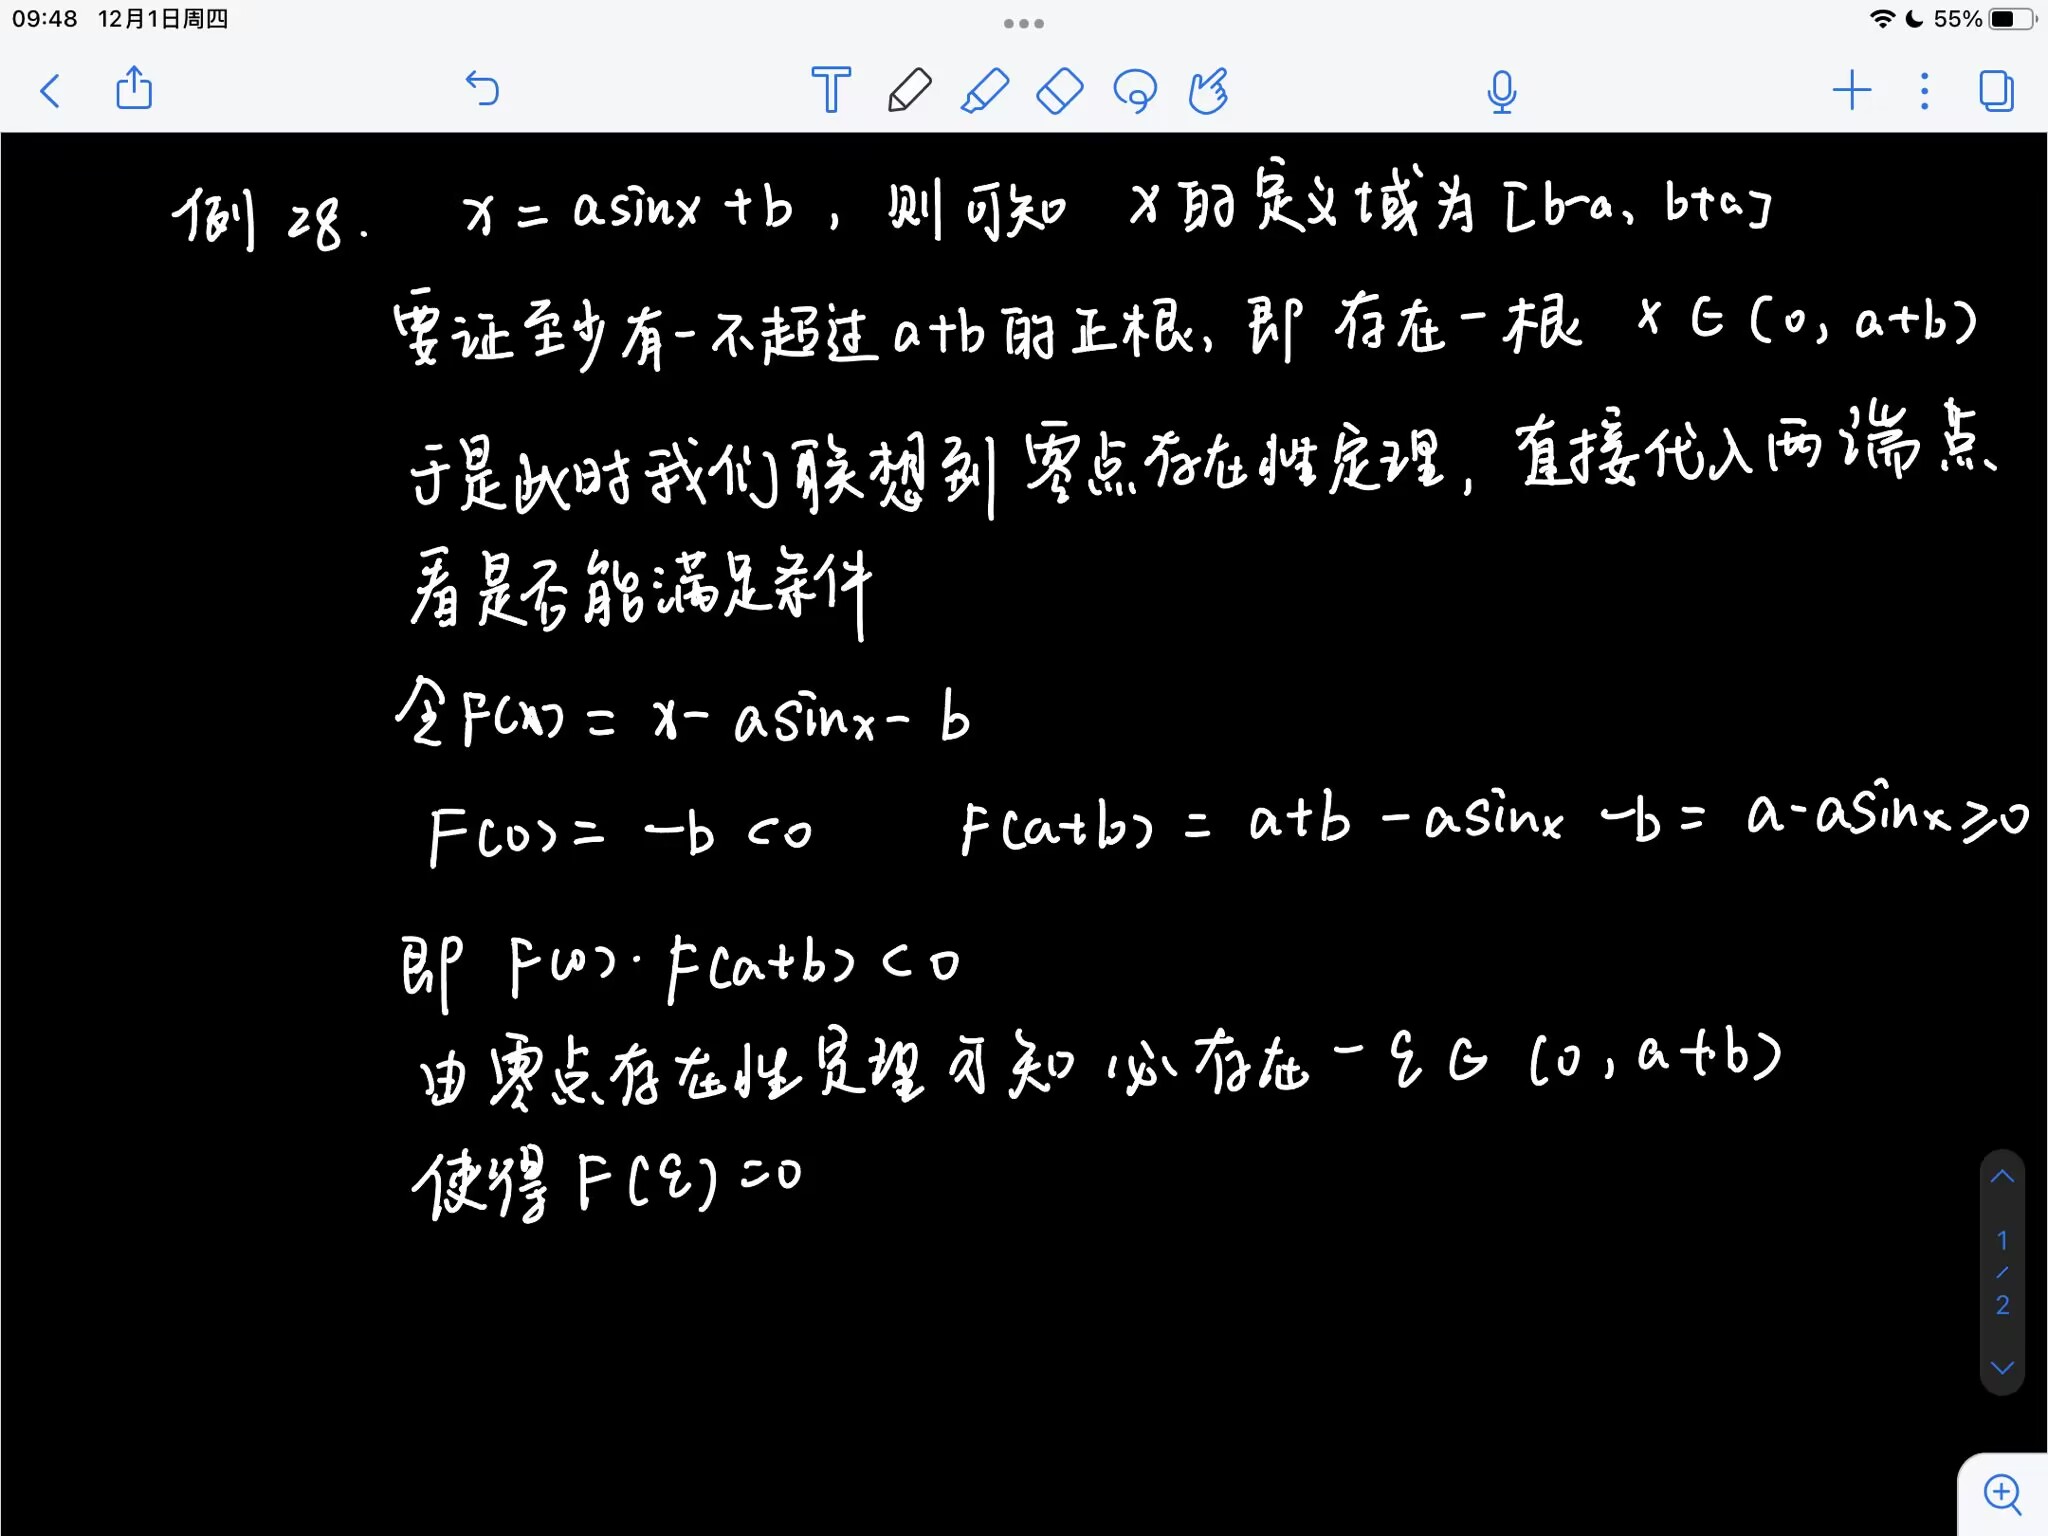 09:48 12月1日周四 55%
例 28. x = asinx + b , 则可知 x 的定义域为 [b-a, b+a]
要证至少有一不超过 a+b 的正根, 即存在一根 x ∈ (0, a+b)
于是此时我们联想到零点存在性定理, 直接代入两端点
看是否能满足条件
令F(x) = x - asinx - b
F(0) = -b <0 F(a+b) = a+b - asinx -b = a-asinx ≥0
即 F(0)·F(a+b) <0
由零点存在性定理可知必存在一 ξ ∈ (0, a+b)
使得 F(ξ) =0
1
/
2